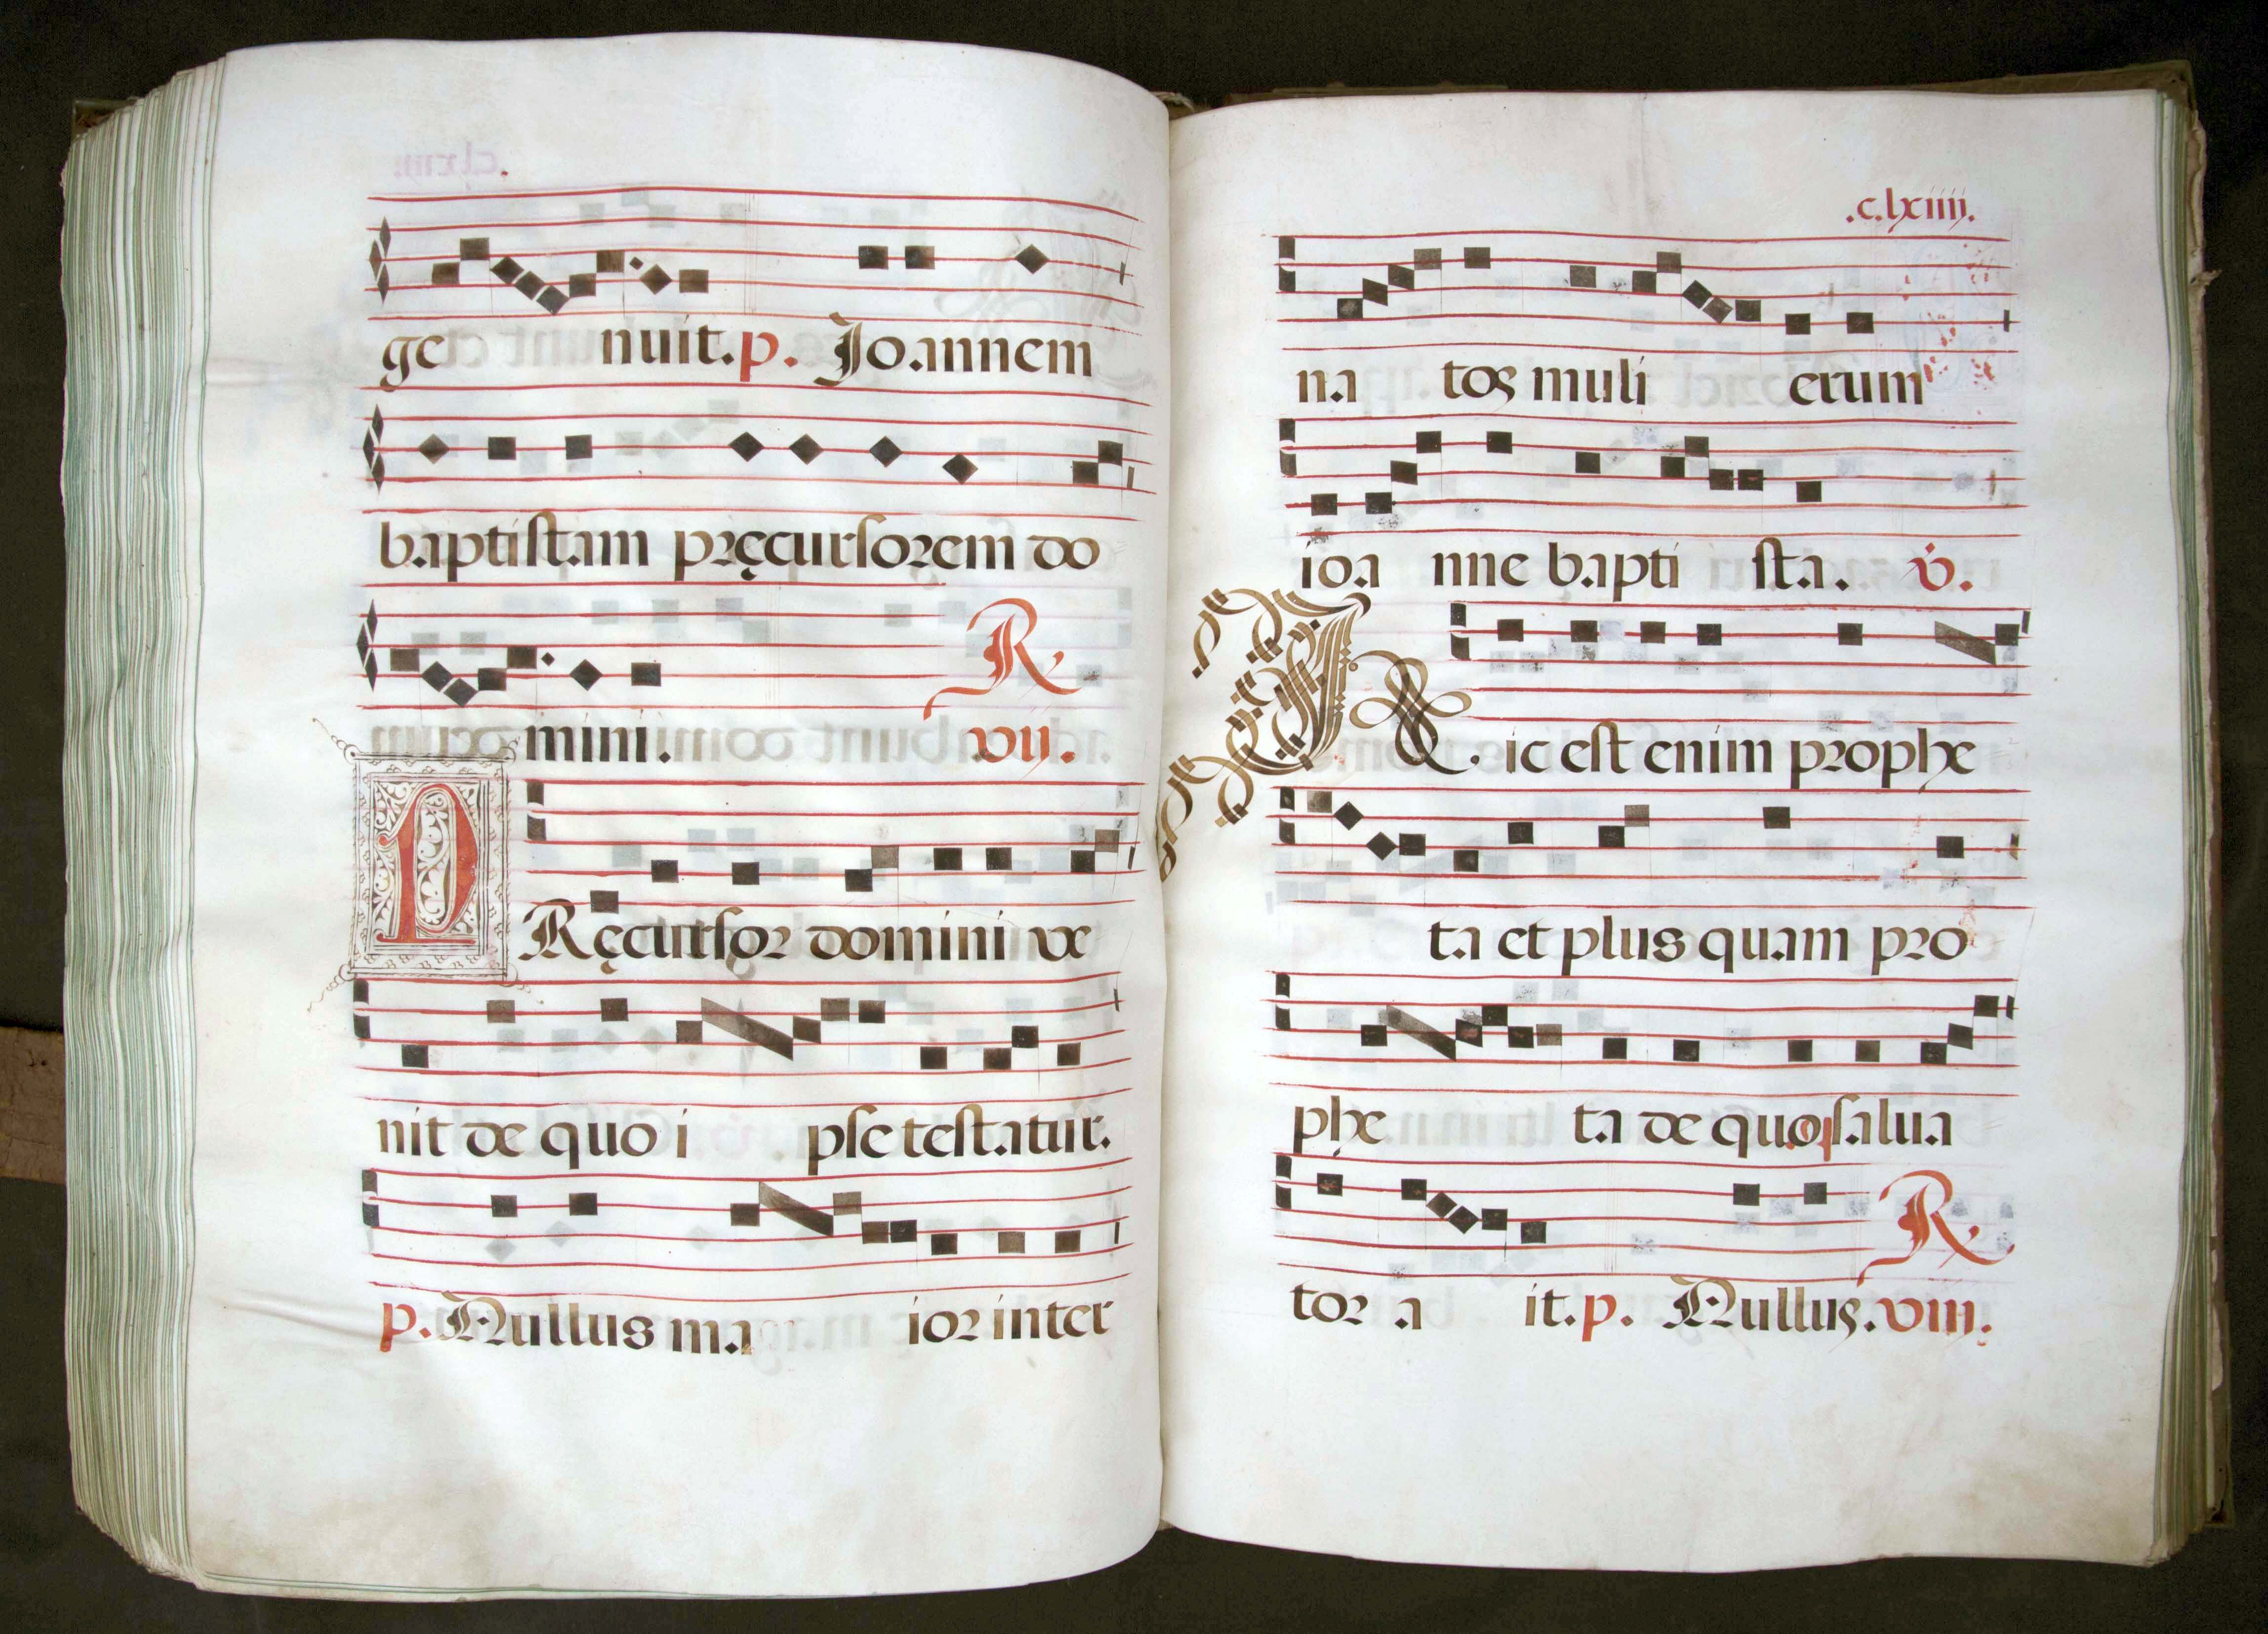 ge nuit. p. Joannem
baptistam pręcursorem do
R.
mini. vij.
PRęcursor domini ve
nit de quo i pse testatur.
p. Nullus ma ior inter
.c.lxiiij.
na tos muli erum
ioa nne bapti sta. v.
H ic est enim prophe
ta et plus quam pro
phe ta de quo salua
R.
tor a it. p. Nullus. viij.